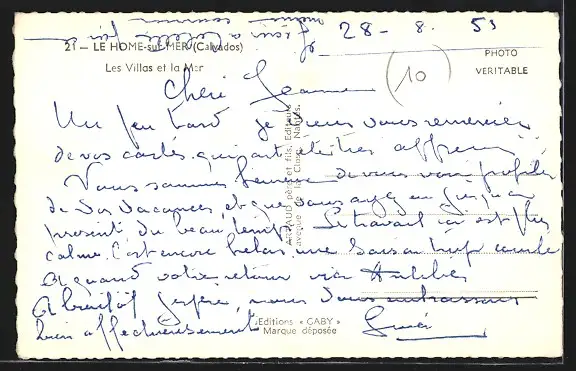 28 - 8. 53
21 - LE HOME-sur-MER (Calvados)
Les Villas et la Mer
PHOTO
VERITABLE
(10)
Cheri Jeanne
Un peu tard je viens vous remercier
de vos cartes qui ont été très
Vous sommes heureux de vous voir profiter
de vos vacances, et que vous ayez eu jusqu'au
présent du beau temps. Le travail ici est plus
calme. C'est encore helas, une saison trop courte
A quand votre retour via Antibes
A bientot j'espère, nous vous embrassons
bien affectueusement
ARTAUD père et fils, Editeurs
avenue de la Close, Nantes.
Editions « GABY »
Marque déposée